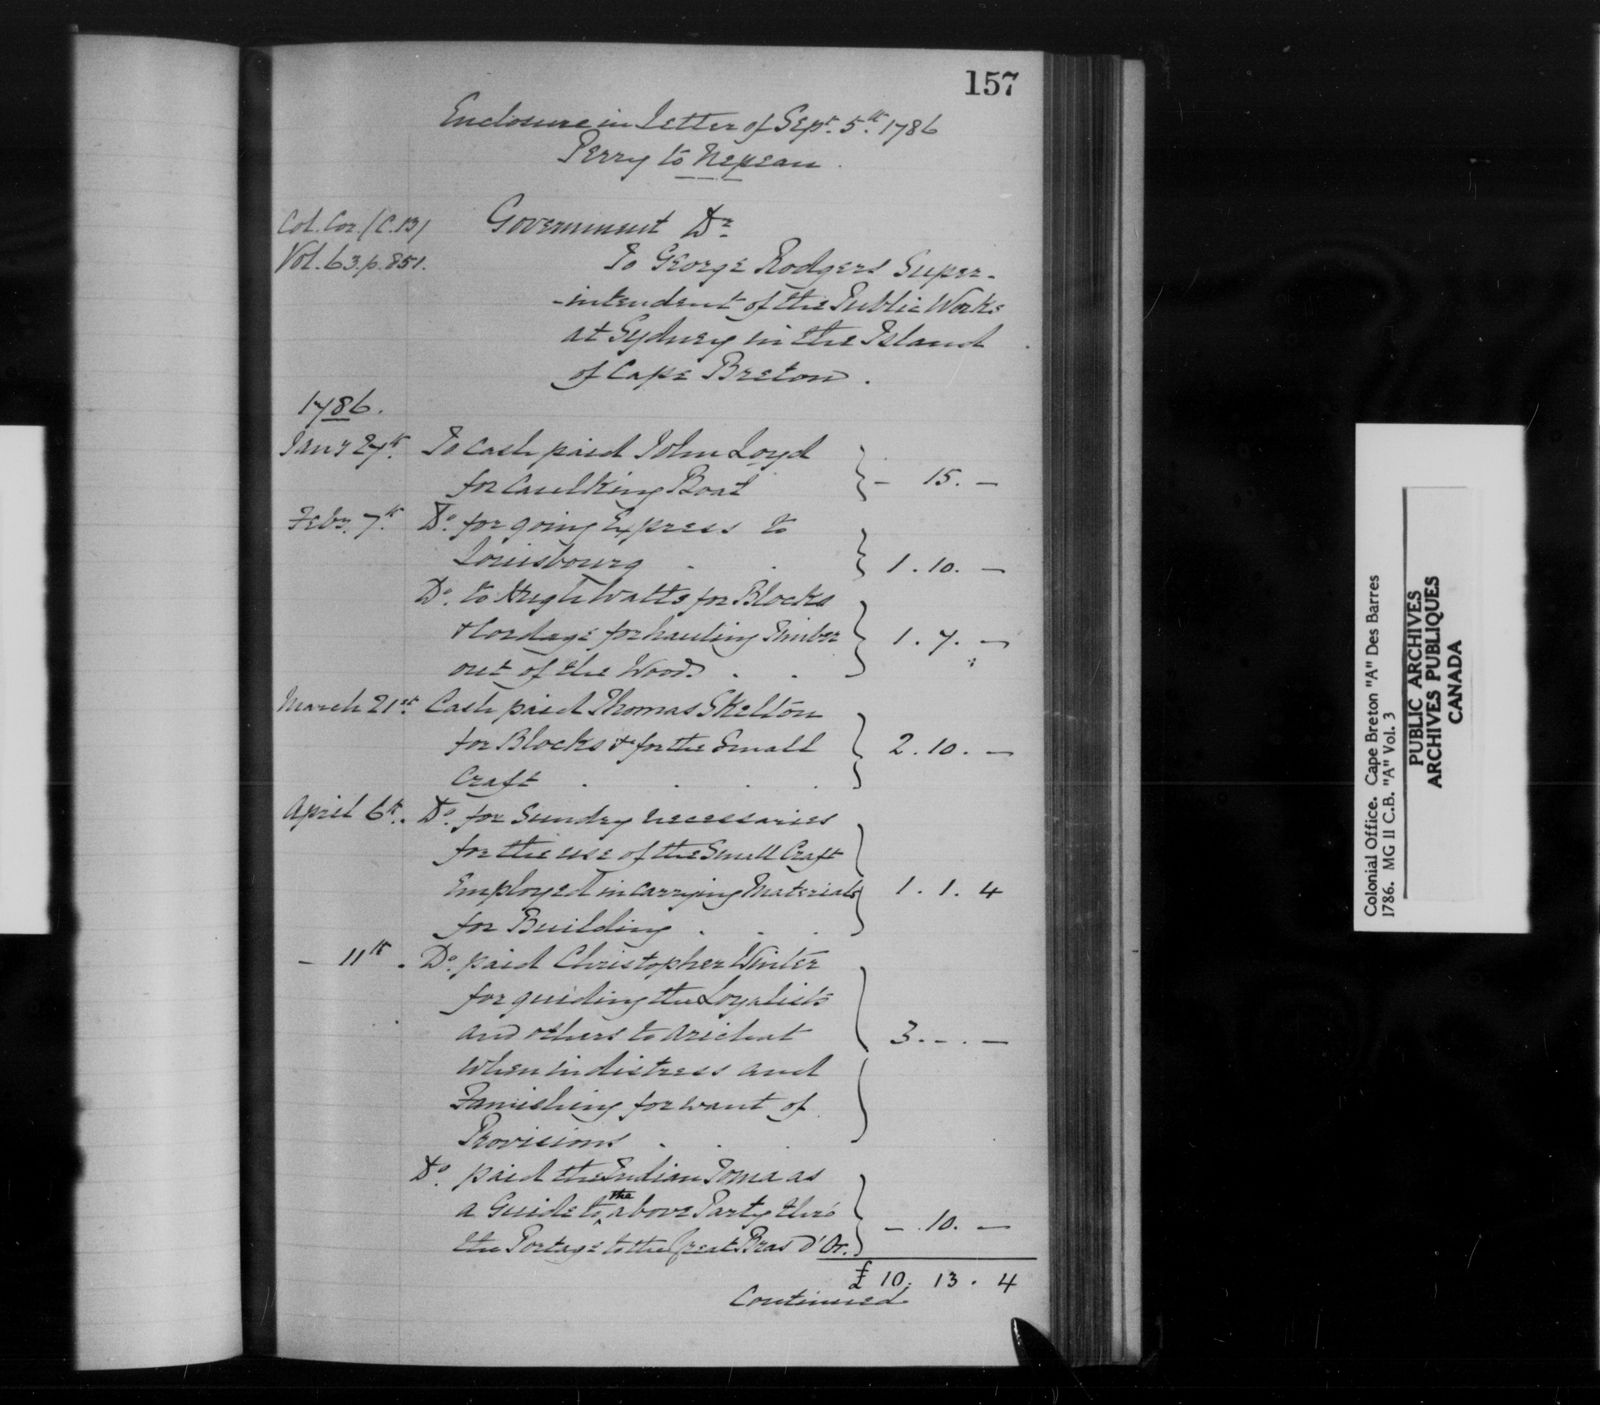 157
Enclosure in Letter of Sept. 5th 1786
Perry to Nepean.
Col. Cor. (C.B)
Vol. 63. p. 851.
Government Dr.
To George Rodgers Super-
-intendent of the Public Works
at Sydney in the Island
of Cape Breton.
1786.
Jany 27th. To Cash paid John Loyd
for Caulking Boat } - 15. -
Feby. 7th. Do. for going Express to
Louisbourg . . } 1. 10. -
Do. to Hugh Watts for Blocks
& Cordage for hauling Timber } 1. 7. -
out of the Wood . .
March 21st. Cash paid Thomas Skelton
for Blocks & for the Small } 2. 10. -
Craft . . . .
April 6th. Do. for Sundry necessaries
for the use of the Small Craft
Employed in carrying Materials } 1. 1. 4
for Building . . .
- 11th. Do. paid Christopher Winter
for guiding the Loyalists
and others to Arichat } 3. -. -
when in distress and
Famishing for want of
Provisions . . .
Do. paid the Indian Toma as
a Guide to the above Party thro'
the Portage to the Great Bras d'Or. } - . 10. -
£ 10. 13. 4
Continued
Colonial Office. Cape Breton "A" Des Barres
1786. MG 11 C.B. "A" Vol. 3
PUBLIC ARCHIVES
ARCHIVES PUBLIQUES
CANADA